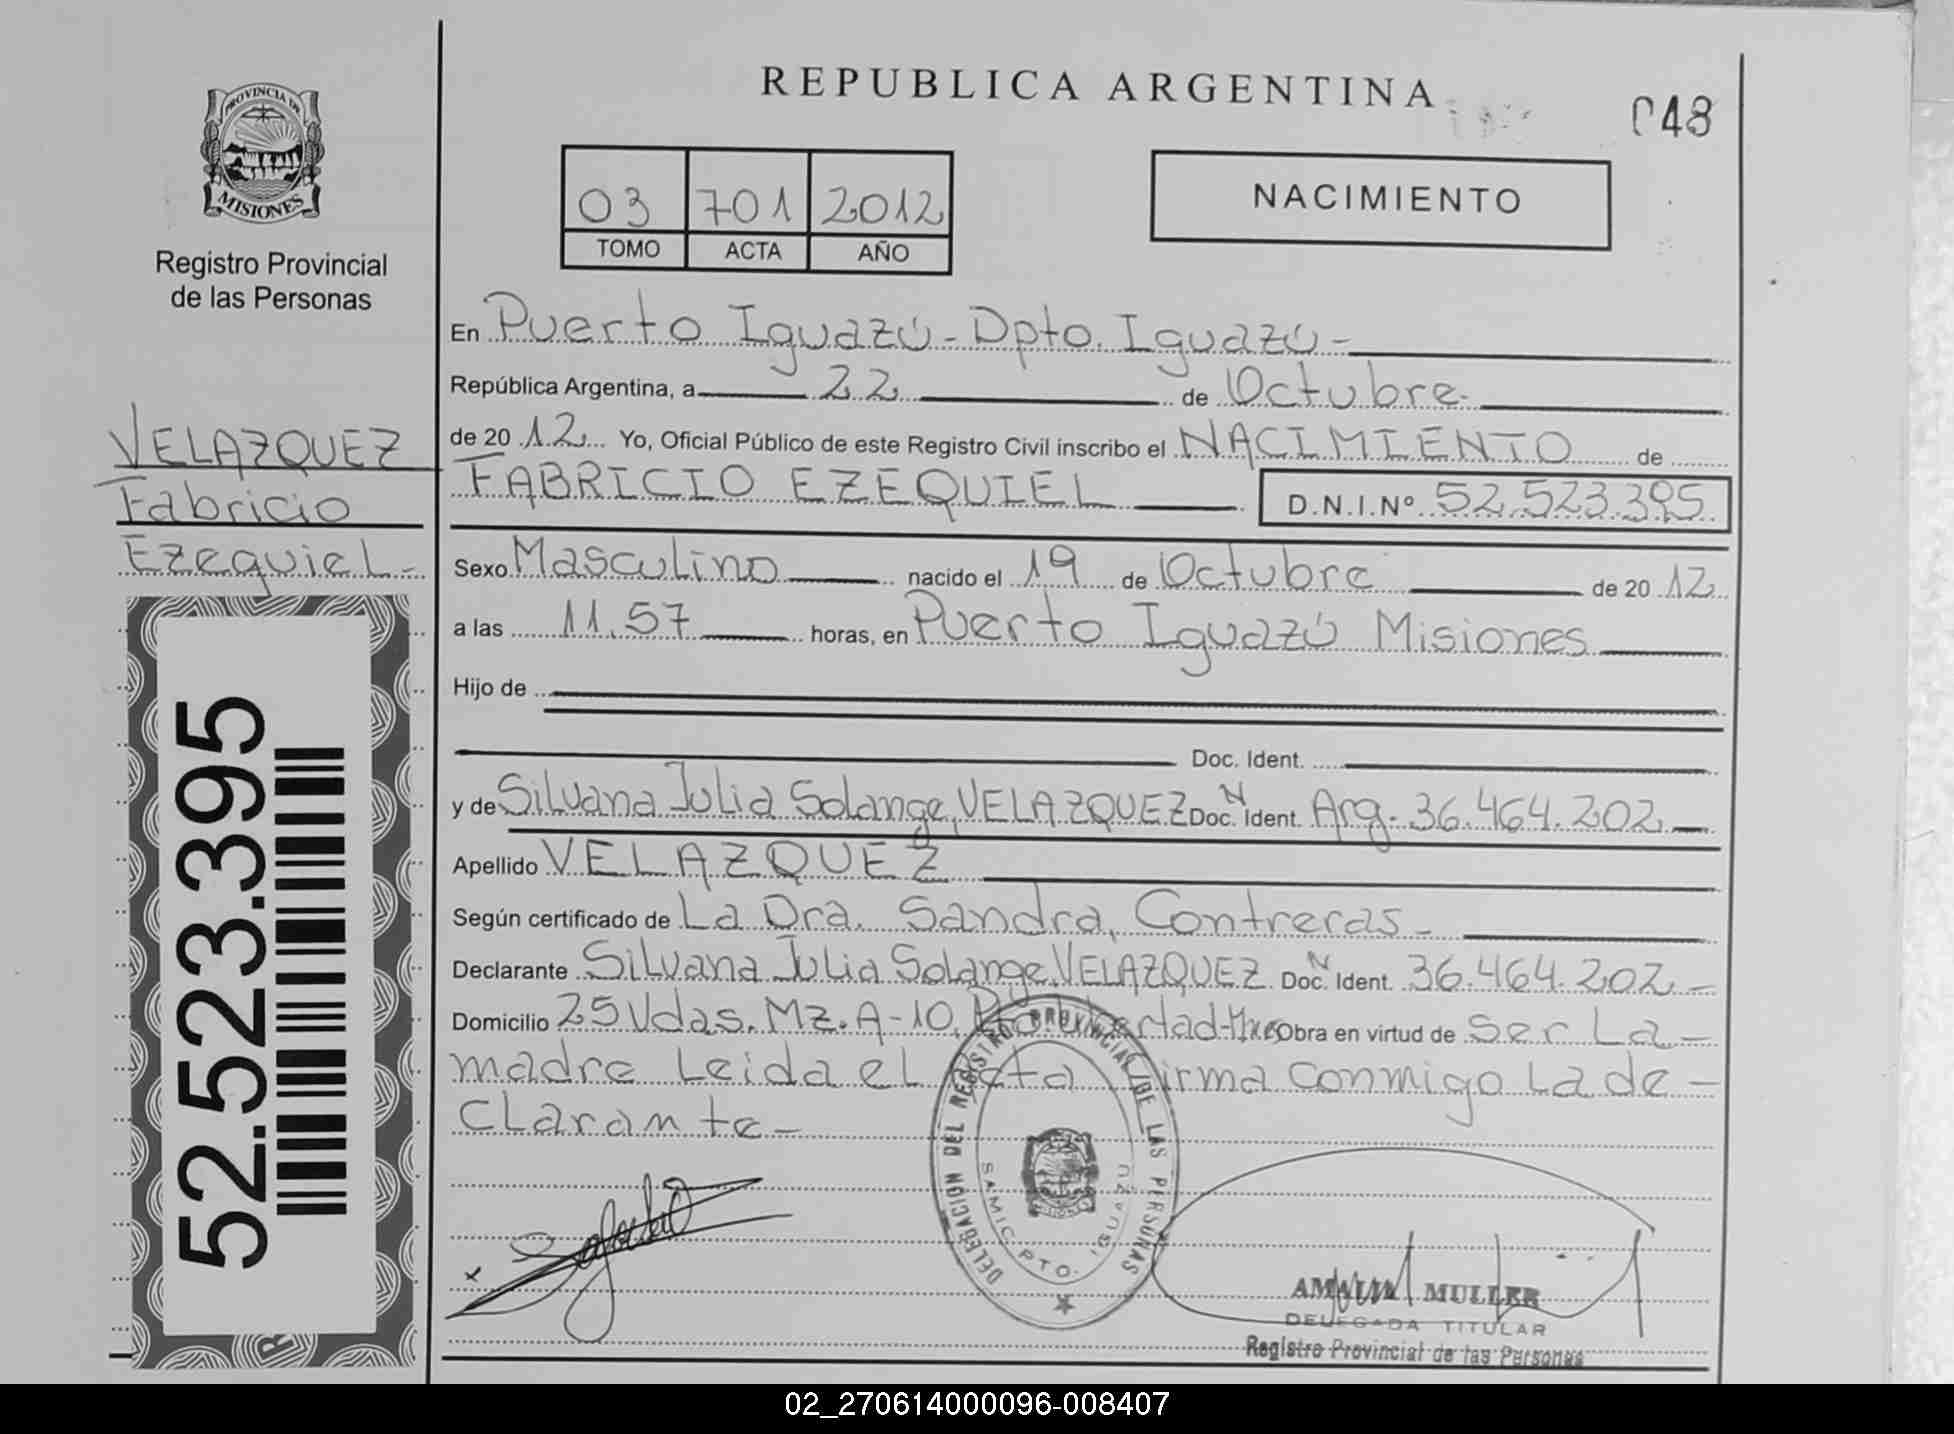 PROVINCIA DE
MISIONES
Registro Provincial
de las Personas
VELAZQUEZ
Fabricio
Ezequiel-
52.523.395
REPUBLICA ARGENTINA
048
03 701 2012
TOMO ACTA AÑO
NACIMIENTO
En Puerto Iguazú - Dpto. Iguazú -
República Argentina, a 22 de Octubre-
de 20 12 Yo, Oficial Público de este Registro Civil inscribo el NACIMIENTO de
FABRICIO EZEQUIEL D.N.I.Nº 52.523.395
Sexo Masculino nacido el 19 de Octubre de 20 12
a las 11,57 horas, en Puerto Iguazú Misiones
Hijo de
Doc. Ident.
y de Silvana Julia Solange, VELAZQUEZ Doc. N Ident. Arg. 36.464.202
Apellido VELAZQUEZ
Según certificado de La Dra. Sandra, Contreras -
Declarante Silvana Julia Solange VELAZQUEZ Doc. N Ident. 36.464.202 -
Domicilio 25 Vdas. Mz. A-10, Obra en virtud de Ser La -
madre Leida el acta firma conmigo La de -
clarante -
DELEGACION DEL REGISTRO PROVINCIAL DE LAS PERSONAS
PTO. IGUAZU
MULLER
DELEGADA TITULAR
Registro Provincial de las Personas
02_270614000096-008407